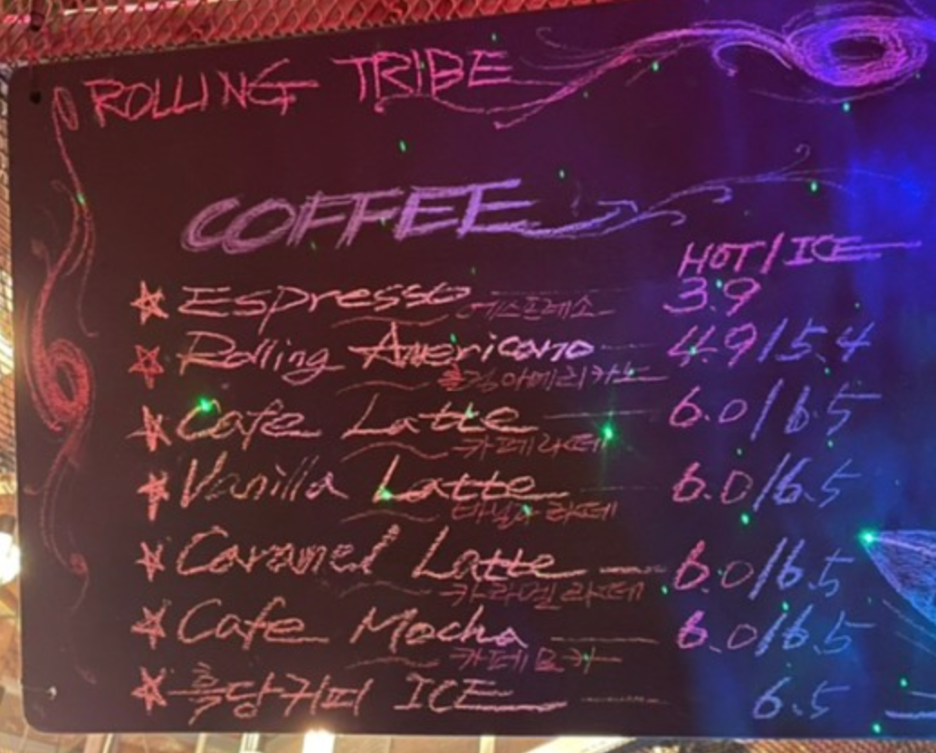 ROLLING TRIBE
COFFEE
HOT/ICE
Espresso 3.9
에스프레소
Rolling Americano 4.9/5.4
롤링아메리카노
Cafe Latte 6.0/6.5
카페라떼
Vanilla Latte 6.0/6.5
바닐라라떼
Caramel Latte 6.0/6.5
카라멜라떼
Cafe Mocha 6.0/6.5
카페모카
흑당커피 ICE 6.5